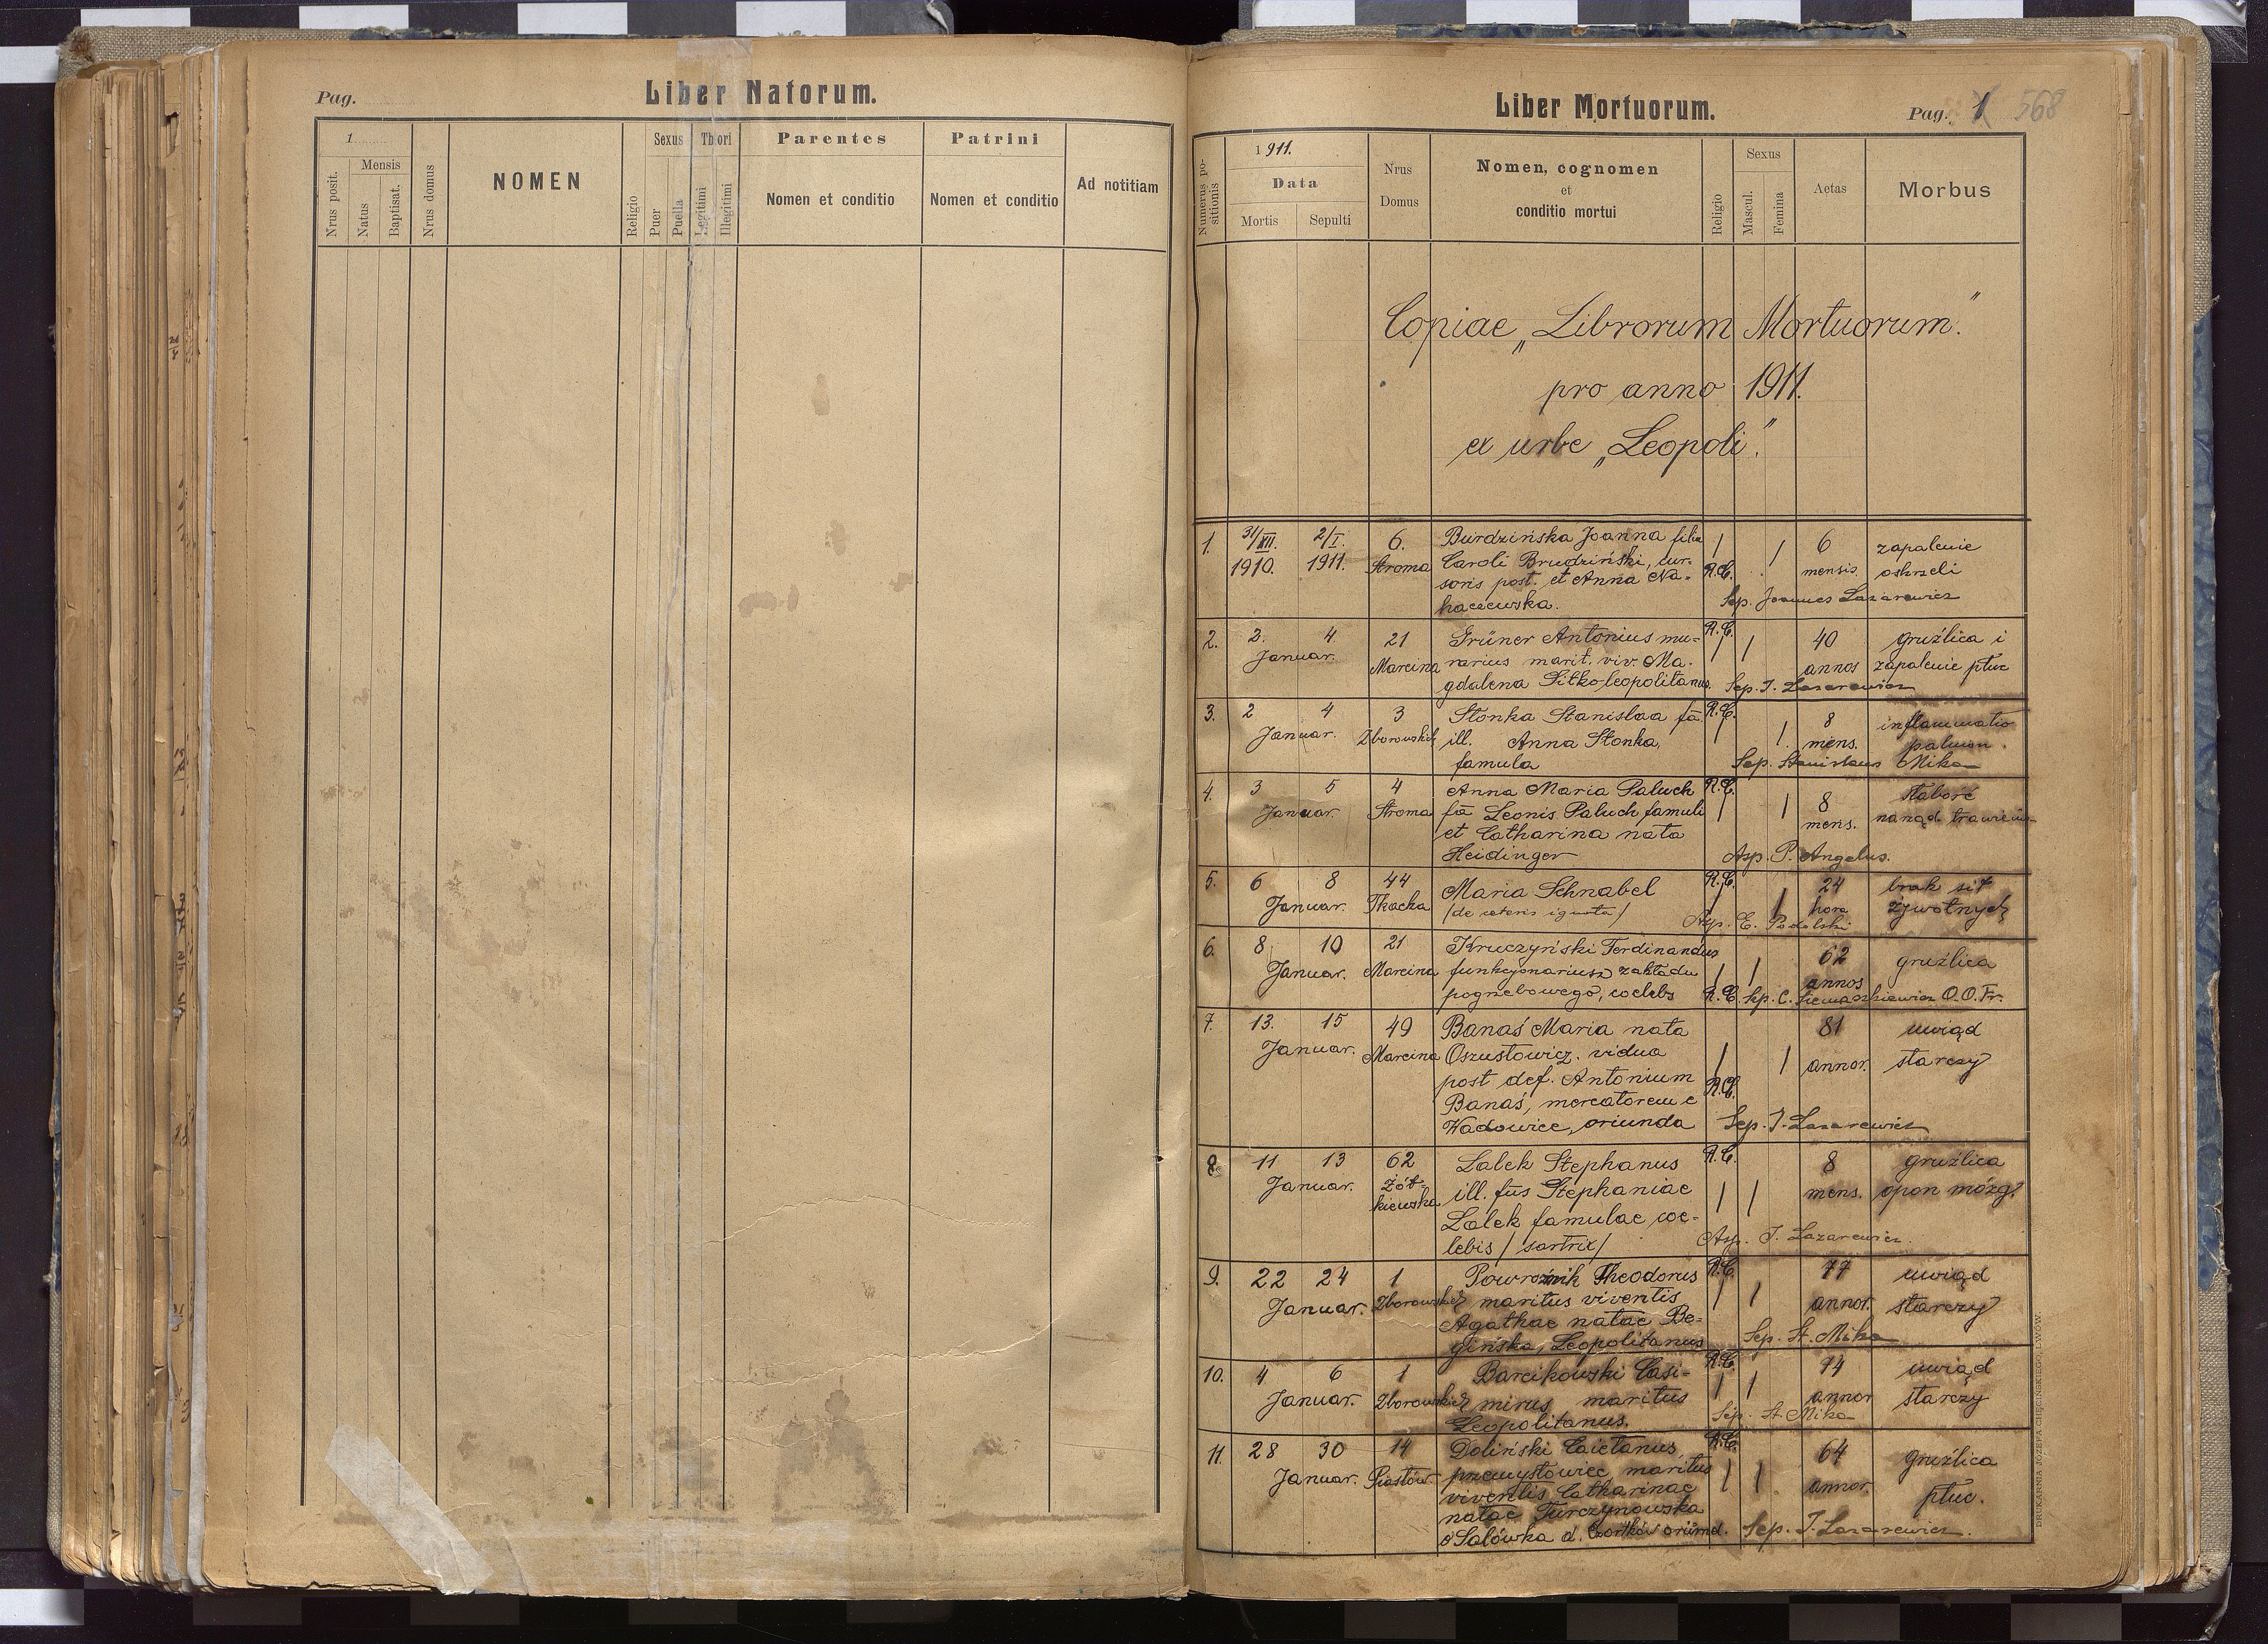 Pag.
Liber Natorum.
1
Nrus posit.
Mensis
Natus
Baptisat.
Nrus domus
NOMEN
Religio
Sexus
Puer
Puella
Thori
Legitimi
Illegitimi
Parentes
Nomen et conditio
Patrini
Nomen et conditio
Ad notitiam
Liber Mortuorum.
Pag. 1 568
Numerus positionis
1911.
Data
Mortis
Sepulti
Nrus
Domus
Nomen, cognomen
et
conditio mortui
Religio
Sexus
Mascul.
Femina
Aetas
Morbus
Copiae „Librorum Mortuorum."
pro anno 1911.
ex urbe „Leopoli".
1. 31/XII. 2/I. 6. Burdzińska Joanna filia / / 6 zapalenie
1910. 1911. Stroma Caroli Brudziński, cur- R.C. mensis. oskrzeli
soris post. et Anna Na-
haczewska. Sep. Joannes Lazarewicz
2. 2. 4 21 Grüner Antonius mu- R.C. / / 40 gruźlica i
Januar. Marcina rarius marit. viv. Ma- annos zapalenie płuc
gdalena Sitko leopolitanus. Sep. J. Lazarewicz
3. 2 4 3 Stonka Stanislaa fa R.C. / / 8 inflammatio
Januar. Zborowskich ill. Anna Stonka, mens. pulmon.
famula Sep. Stanislaus Mika
4. 3 5 4 Anna Maria Paluch R.C. / / 8 słabość
Januar. Stroma fa Leonis Paluch famuli mens. narząd. trawien.
et Catharina nata
Heidinger Asp. P. Angelus.
5. 6 8 44 Maria Schnabel R.C. / / 24 brak sił
Januar. Tkacka /de ceteris ignota/ hora żywotnych
Asp. E. Podolski
6. 8 10 21 Kruczyński Ferdinandus / / 62 gruźlica
Januar. Marcina funkcyonariusz zakładu annos
pogrzebowego, coelebs R.C. Sep. C. Siemaszkiewicz O.O.Fr.
7. 13. 15 49 Banaś Maria nata 81 uwiąd
Januar. Marcina Oszustowicz. vidua / / annor. starczy
post def. Antonium R.C.
Banaś, mercatorem e
Wadowice, oriunda Sep. J. Lazarewicz
8. 11 13 62 Lalek Stephanus R.C. 8 gruźlica
Januar. Żół- ill. fus Stephaniae / / mens. opon mózg.
kiewska Lalek famulae coe-
lebis /sartrix/ Asp. J. Lazarewicz.
9. 22 24 1 Powroźnik Theodorus R.C. 77 uwiąd
Januar. Zborowskich maritus viventis / / annor. starczy
Agathae natae Be-
gińska, Leopolitanus Sep. St. Mika
10. 4 6 1 Barcikowski Casi- R.C. 74 uwiąd
Januar. Zborowskich mirus maritus / / annor starczy
Leopolitanus. Sep. St. Mika
11. 28 30 14 Doliński Caietanus R.C. 64 gruźlica
Januar. Piastów. przemysłowiec, maritus / / annor. płuc.
viventis Catharinae
natae Turczynowska
o Salówka d. Czortków oriund. Sep. J. Lazarewicz.
DRUKARNIA JÓZEFA CHĘCIŃSKIEGO, LWÓW.